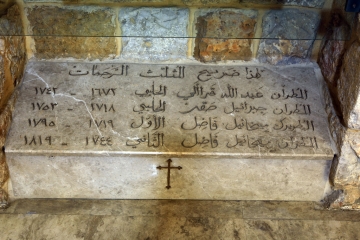 هذا ضريح المثلث الرحمات
المطران عبد الله قراألي الحلبي ١٦٧٢ - ١٧٤٢
المطران جبرائيل حقت الحلبي ١٧١٨ - ١٧٥٢
البطريرك ميخائيل فاضل الأول ١٧١٩ - ١٧٩٥
المطران ميخائيل فاضل الثاني ١٧٤٤ - ١٨١٩